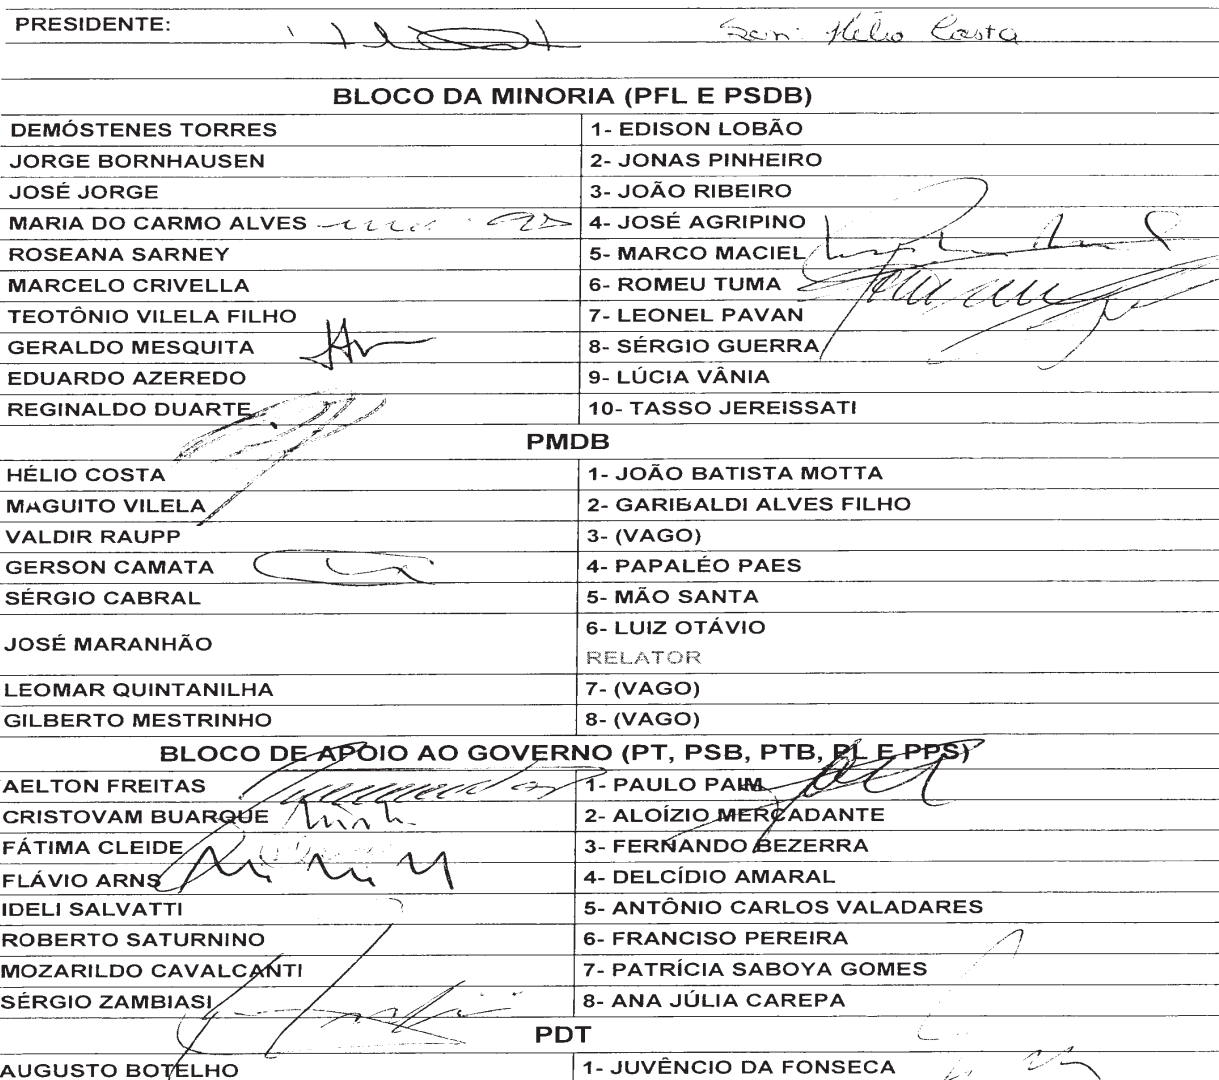 PRESIDENTE: Sen: Hélio Costa
BLOCO DA MINORIA (PFL E PSDB)
DEMÓSTENES TORRES 1- EDISON LOBÃO
JORGE BORNHAUSEN 2- JONAS PINHEIRO
JOSÉ JORGE 3- JOÃO RIBEIRO
MARIA DO CARMO ALVES 4- JOSÉ AGRIPINO
ROSEANA SARNEY 5- MARCO MACIEL
MARCELO CRIVELLA 6- ROMEU TUMA
TEOTÔNIO VILELA FILHO 7- LEONEL PAVAN
GERALDO MESQUITA 8- SÉRGIO GUERRA
EDUARDO AZEREDO 9- LÚCIA VÂNIA
REGINALDO DUARTE 10- TASSO JEREISSATI
PMDB
HÉLIO COSTA 1- JOÃO BATISTA MOTTA
MAGUITO VILELA 2- GARIBALDI ALVES FILHO
VALDIR RAUPP 3- (VAGO)
GERSON CAMATA 4- PAPALÉO PAES
SÉRGIO CABRAL 5- MÃO SANTA
JOSÉ MARANHÃO 6- LUIZ OTÁVIO
RELATOR
LEOMAR QUINTANILHA 7- (VAGO)
GILBERTO MESTRINHO 8- (VAGO)
BLOCO DE APOIO AO GOVERNO (PT, PSB, PTB, PL E PPS)
AELTON FREITAS 1- PAULO PAIM
CRISTOVAM BUARQUE 2- ALOÍZIO MERCADANTE
FÁTIMA CLEIDE 3- FERNANDO BEZERRA
FLÁVIO ARNS 4- DELCÍDIO AMARAL
IDELI SALVATTI 5- ANTÔNIO CARLOS VALADARES
ROBERTO SATURNINO 6- FRANCISO PEREIRA
MOZARILDO CAVALCANTI 7- PATRÍCIA SABOYA GOMES
SÉRGIO ZAMBIASI 8- ANA JÚLIA CAREPA
PDT
AUGUSTO BOTELHO 1- JUVÊNCIO DA FONSECA